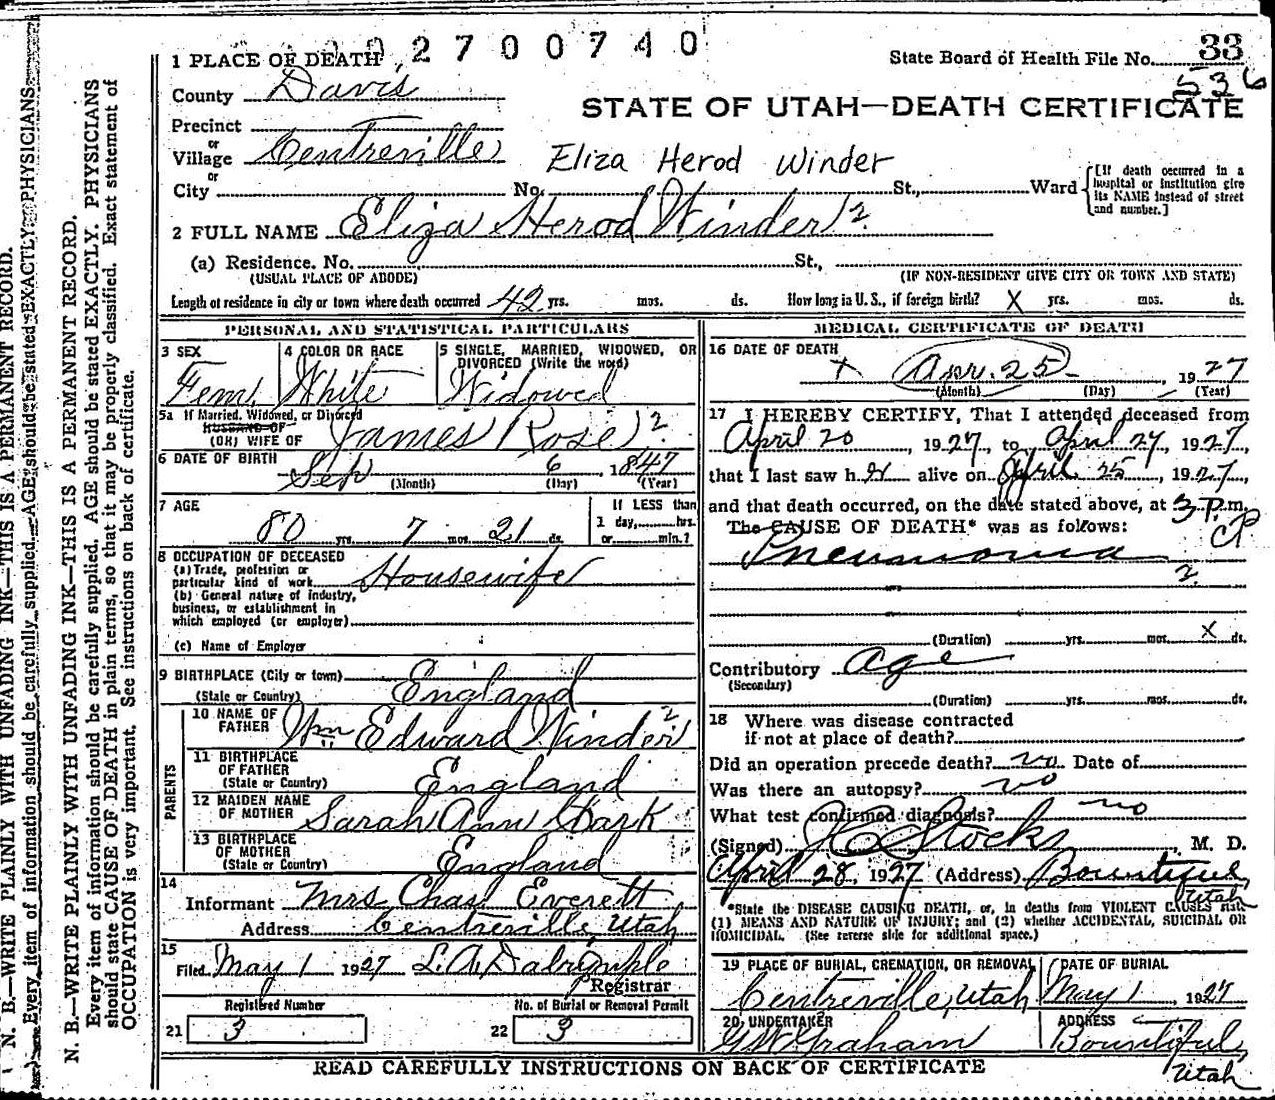 N. B.—WRITE PLAINLY WITH UNFADING INK—THIS IS A PERMANENT RECORD.
Every item of information should be carefully supplied. AGE should be stated EXACTLY. PHYSICIANS
N. B.—WRITE PLAINLY WITH UNFADING INK—THIS IS A PERMANENT RECORD.
Every item of information should be carefully supplied. AGE should be stated EXACTLY. PHYSICIANS
should state CAUSE OF DEATH in plain terms, so that it may be properly classified. Exact statement of
OCCUPATION is very important. See instructions on back of certificate.
2700740
1 PLACE OF DEATH
State Board of Health File No. 33
536
County Davis
STATE OF UTAH—DEATH CERTIFICATE
Precinct
or
Village Centreville
Eliza Herod Winder
or
City No. St., Ward
[If death occurred in a hospital or institution give its NAME instead of street and number.]
2 FULL NAME Eliza Herod Winder 2
(a) Residence. No. St.,
(USUAL PLACE OF ABODE) (IF NON-RESIDENT GIVE CITY OR TOWN AND STATE)
Length of residence in city or town where death occurred 42 yrs. mos. ds. How long in U.S., if foreign birth? X yrs. mos. ds.
PERSONAL AND STATISTICAL PARTICULARS
3 SEX 4 COLOR OR RACE 5 SINGLE, MARRIED, WIDOWED, OR
DIVORCED (Write the word)
Fem. White Widowed
5a If Married, Widowed, or Divorced
HUSBAND OF
(OR) WIFE OF James Rose 2
6 DATE OF BIRTH
Sep 6, 1847
(Month) (Day) (Year)
7 AGE
80 yrs. 7 mos. 21 ds.
If LESS than
1 day, hrs.
or min.?
8 OCCUPATION OF DECEASED
(a) Trade, profession or
particular kind of work Housewife
(b) General nature of industry,
business, or establishment in
which employed (or employer)
(c) Name of Employer
9 BIRTHPLACE (City or town)
(State or Country) England
PARENTS
10 NAME OF
FATHER Wm Edward Winder 2
11 BIRTHPLACE
OF FATHER
(State or Country) England
12 MAIDEN NAME
OF MOTHER Sarah Ann Stark
13 BIRTHPLACE
OF MOTHER
(State or Country) England
14
Informant Mrs Chas Everett
Address Centreville, Utah
15
Filed May 1 1927 L. A. Dalrymple
Registrar
Registered Number No. of Burial or Removal Permit
21 3 22 3
MEDICAL CERTIFICATE OF DEATH
16 DATE OF DEATH
X Apr. 25, 1927
(Month) (Day) (Year)
17 I HEREBY CERTIFY, That I attended deceased from
April 20, 1927, to April 27, 1927,
that I last saw her alive on April 25, 1927,
and that death occurred, on the date stated above, at 3 P. m.
The CAUSE OF DEATH* was as follows:
CP
Pneumonia
2
(Duration) yrs. mos. X ds.
Contributory Age
(Secondary)
(Duration) yrs. mos. ds.
18 Where was disease contracted
if not at place of death?
Did an operation precede death? no Date of
Was there an autopsy? no
What test confirmed diagnosis? no
(Signed) Stocks, M. D.
April 28, 1927 (Address) Bountiful,
Utah
*State the DISEASE CAUSING DEATH, or, in deaths from VIOLENT CAUSES state
(1) MEANS AND NATURE OF INJURY; and (2) whether ACCIDENTAL, SUICIDAL OR
HOMICIDAL. (See reverse side for additional space.)
19 PLACE OF BURIAL, CREMATION, OR REMOVAL DATE OF BURIAL
Centreville, Utah May 1, 1927
20 UNDERTAKER ADDRESS
GW Graham Bountiful,
Utah
READ CAREFULLY INSTRUCTIONS ON BACK OF CERTIFICATE